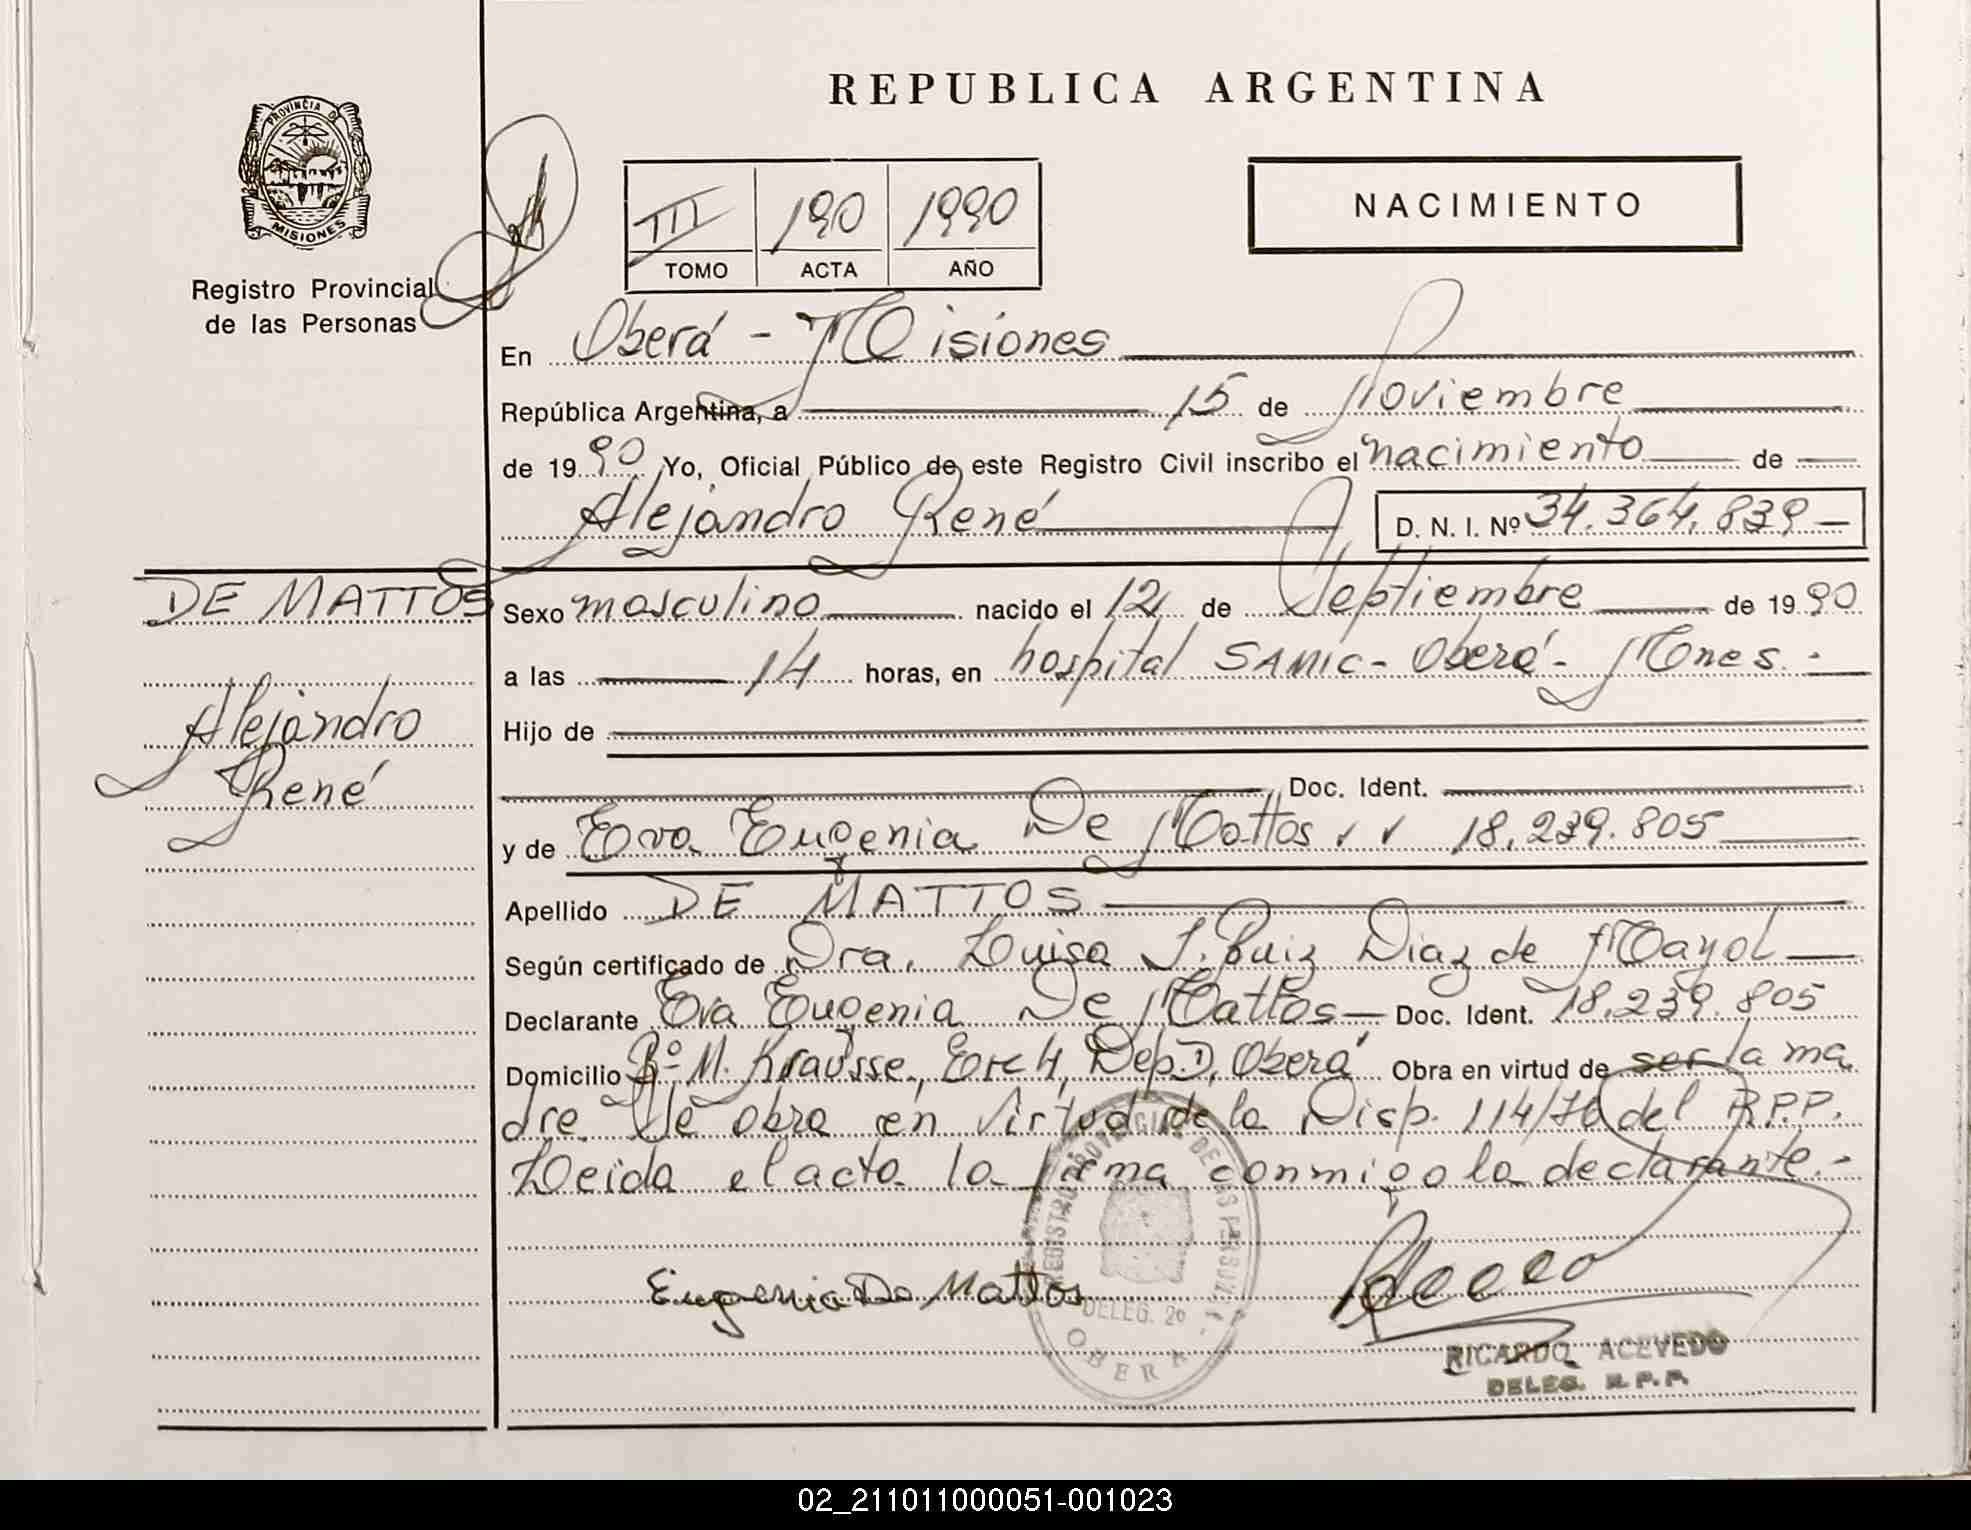 REPUBLICA ARGENTINA
PROVINCIA D
MISIONES
Registro Provincial
de las Personas
III 190 1990
TOMO ACTA AÑO
NACIMIENTO
En Oberá - Misiones
República Argentina, a 15 de Noviembre
de 1990 Yo, Oficial Público de este Registro Civil inscribo el nacimiento de
Alejandro René D. N. I. Nº 34.364.839
DE MATTOS
Alejandro
René
Sexo masculino nacido el 12 de Septiembre de 1990
a las 14 horas, en hospital SAMIC - Oberá - Mnes.-
Hijo de
Doc. Ident.
y de Eva Eugenia De Mattos 18.239.805
Apellido DE MATTOS
Según certificado de Dra. Luisa I. Ruiz Diaz de Mayol
Declarante Eva Eugenia De Mattos Doc. Ident. 18.239.805
Domicilio Bº M. Krausse, Esc 4, Dep. D, Oberá Obra en virtud de ser la ma
dre. Se obra en virtud de la Disp. 114/76 del R.P.P.
Leida el acta la firma conmigo la declarante.-
Eugenia De Mattos
REGISTRO PROVINCIAL DE LAS PERSONAS
DELEG. 2º
OBERA
RICARDO ACEVEDO
DELEG. R.P.P.
02_211011000051-001023